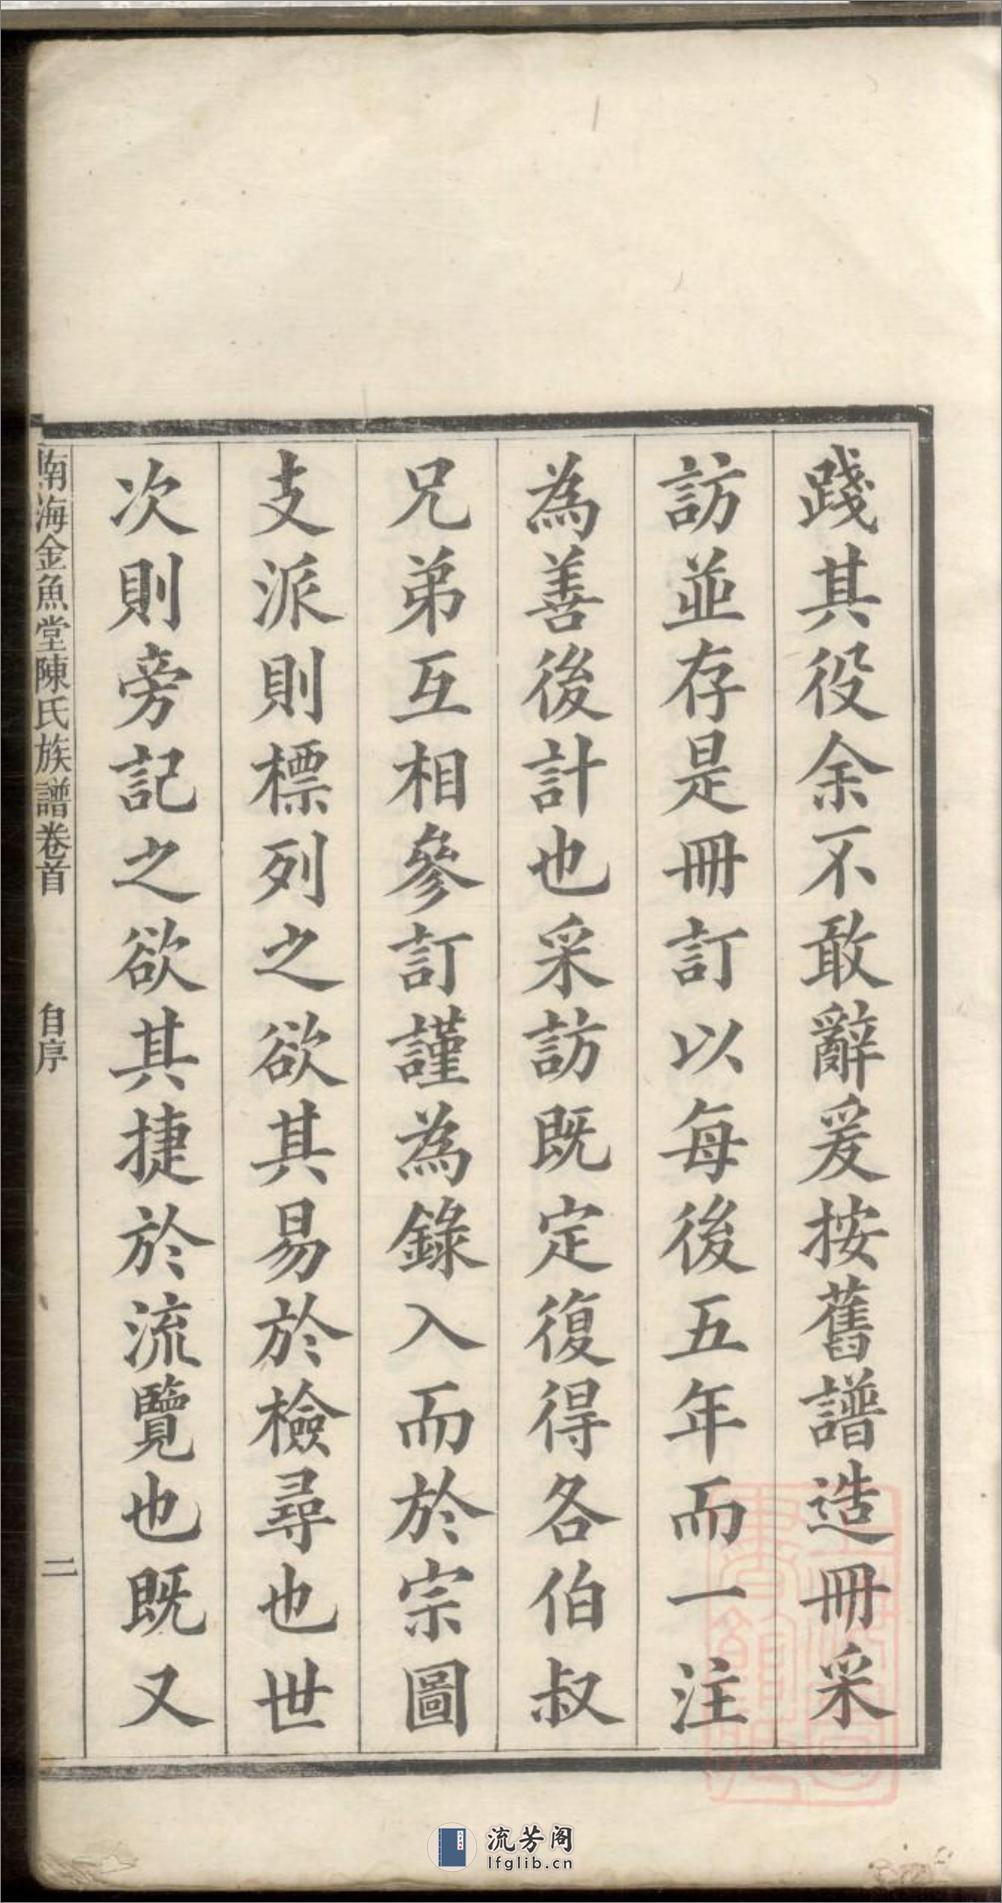 踐其役余不敢辭爰按舊譜造冊采
訪並存是冊訂以每後五年而一注
為善後計也采訪既定復得各伯叔
兄弟互相參訂謹為錄入而於宗圖
支派則標列之欲其易於檢尋也世
次則旁記之欲其捷於流覽也既又
南海金魚堂陳氏族譜卷首 自序 二
流芳阁
lfglib.cn